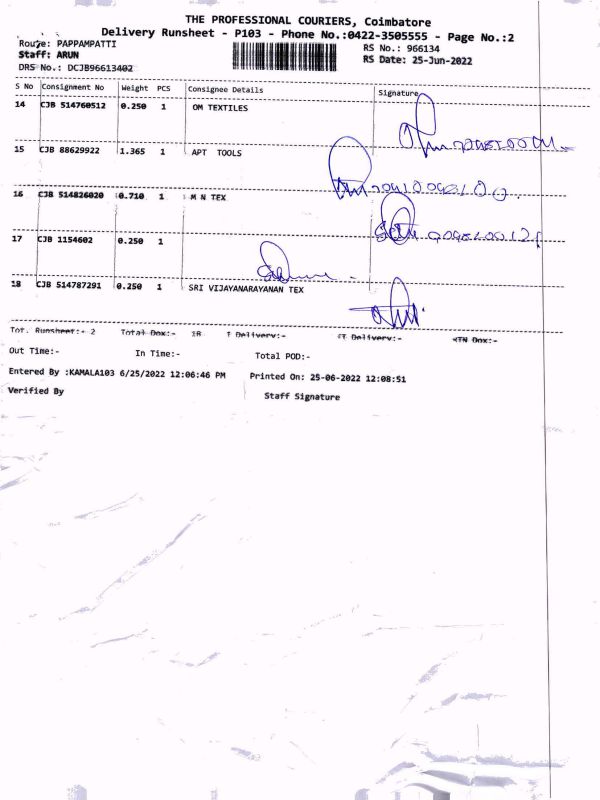 THE PROFESSIONAL COURIERS, Coimbatore
Delivery Runsheet - P103 - Phone No.:0422-3505555 - Page No.:2
Route: PAPPAMPATTI RS No.: 966134
Staff: ARUN RS Date: 25-Jun-2022
DRS No.: DCJB96613402
S No Consignment No Weight PCS Consignee Details Signature
14 CJB 514760512 0.250 1 OM TEXTILES
15 CJB 88629922 1.365 1 APT TOOLS
16 CJB 514826020 0.710 1 M N TEX
17 CJB 1154602 0.250 1
18 CJB 514787291 0.250 1 SRI VIJAYANARAYANAN TEX
Tot. Runsheet:- 2 Total Dox:- 18 T Delivery:- NT Delivery:- NTN Dox:-
Out Time:- In Time:- Total POD:-
Entered By :KAMALA103 6/25/2022 12:06:46 PM Printed On: 25-06-2022 12:08:51
Verified By Staff Signature